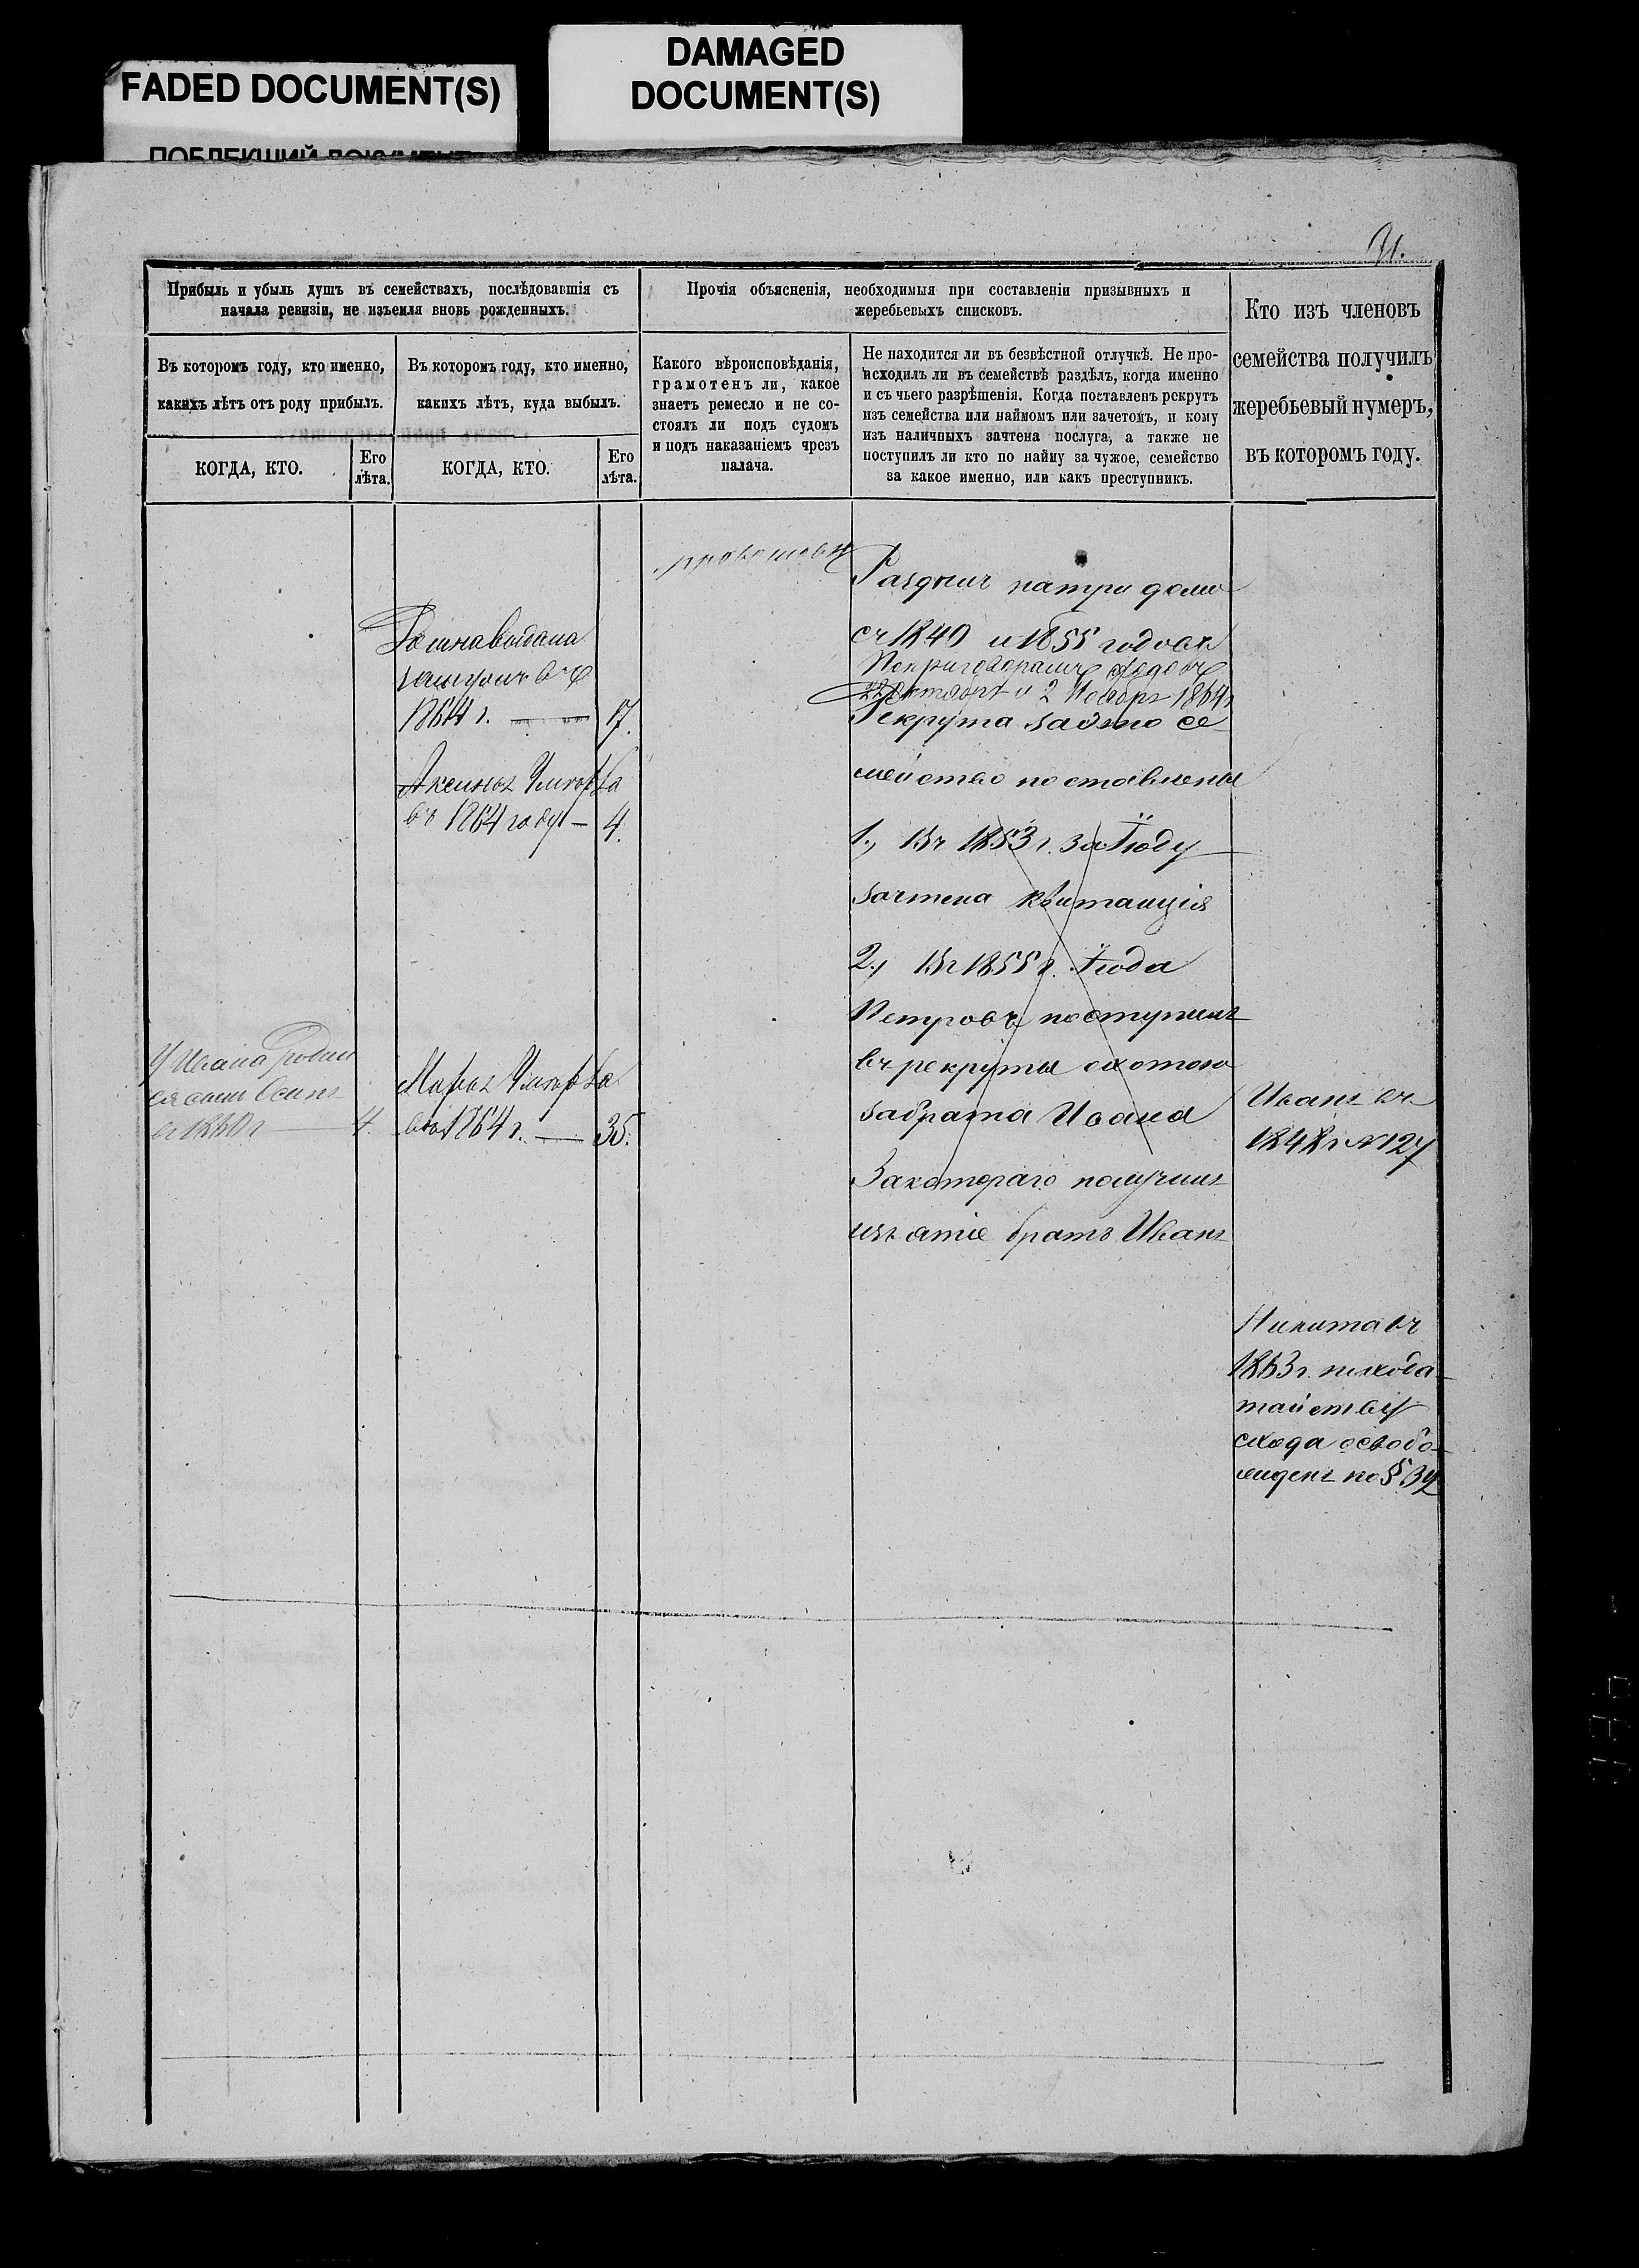 FADED DOCUMENT(S)
DAMAGED
DOCUMENT(S)
31.
Прибыль и убыль душъ въ семействахъ, послѣдовавшія съ
начала ревизіи, не изъемля вновь рожденныхъ.
Въ которомъ году, кто именно,
какихъ лѣтъ отъ роду прибылъ.
КОГДА, КТО.
Его
лѣта.
Въ которомъ году, кто именно,
какихъ лѣтъ, куда выбылъ.
КОГДА, КТО.
Его
лѣта.
Прочія объясненія, необходимыя при составленіи призывныхъ и
жеребьевыхъ списковъ.
Какого вѣроисповѣданія,
грамотенъ ли, какое
знаетъ ремесло и не со-
стоялъ ли подъ судомъ
и подъ наказаніемъ чрезъ
палача.
Не находится ли въ безвѣстной отлучкѣ. Не про-
исходилъ ли въ семействѣ раздѣлъ, когда именно
и съ чьего разрѣшенія. Когда поставленъ рекрутъ
изъ семейства или наймомъ или зачетомъ, и кому
изъ наличныхъ зачтена послуга, а также не
поступилъ ли кто по найму за чужое, семейство
за какое именно, или какъ преступникъ.
Кто изъ членовъ
семейства получилъ
жеребьевый нумеръ,
въ которомъ году.
У Ивана родил
ся сынъ Осипъ
в 1860 г — 4.
выдана
замужъ въ
1864 г. — 17.
Аксинья Умерла
въ 1864 году — 4.
Марья Умерла
въ 1864 г. — 35.
Раздѣлъ на три дома
съ 1840 и 1855 годовъ
22 Октября и 2 Ноября 1864 г
Рекрута за это се
мейство поставлены
1., Въ 1853 г. за
зачтена квитанція
2., Въ 1855 г.
Петровъ поступилъ
въ рекруты охотою
за брата Ивана
За котораго получилъ
изъятіе братъ Иванъ
Иванъ въ
1848 г № 127
Никита въ
1863 г. по хода
тайству
схода освобо
жденъ по §